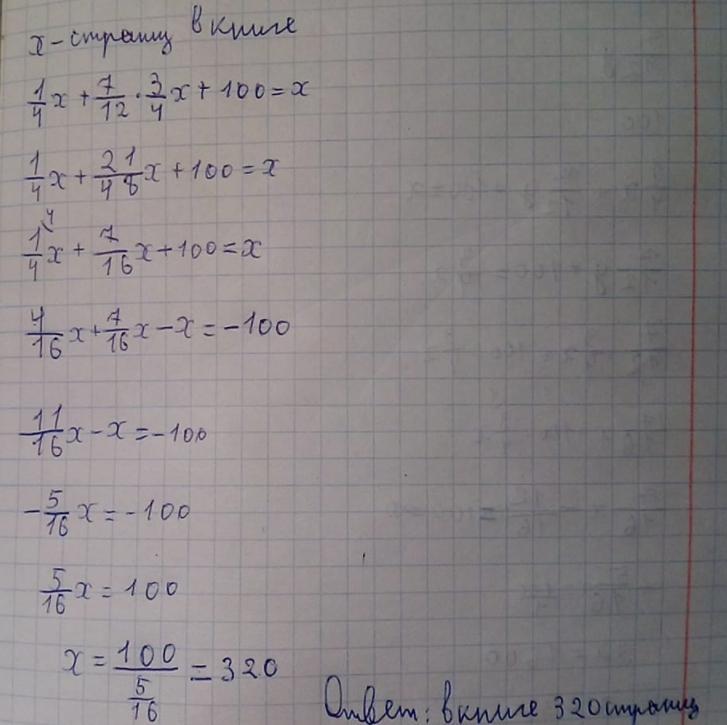 x - страниц в книге
1/4 x + 7/12 · 3/4 x + 100 = x
1/4 x + 21/48 x + 100 = x
1/4 ⁴ x + 7/16 x + 100 = x
4/16 x + 7/16 x - x = -100
11/16 x - x = -100
- 5/16 x = -100
5/16 x = 100
x = 100 / (5/16) = 320
Ответ: в книге 320 страниц